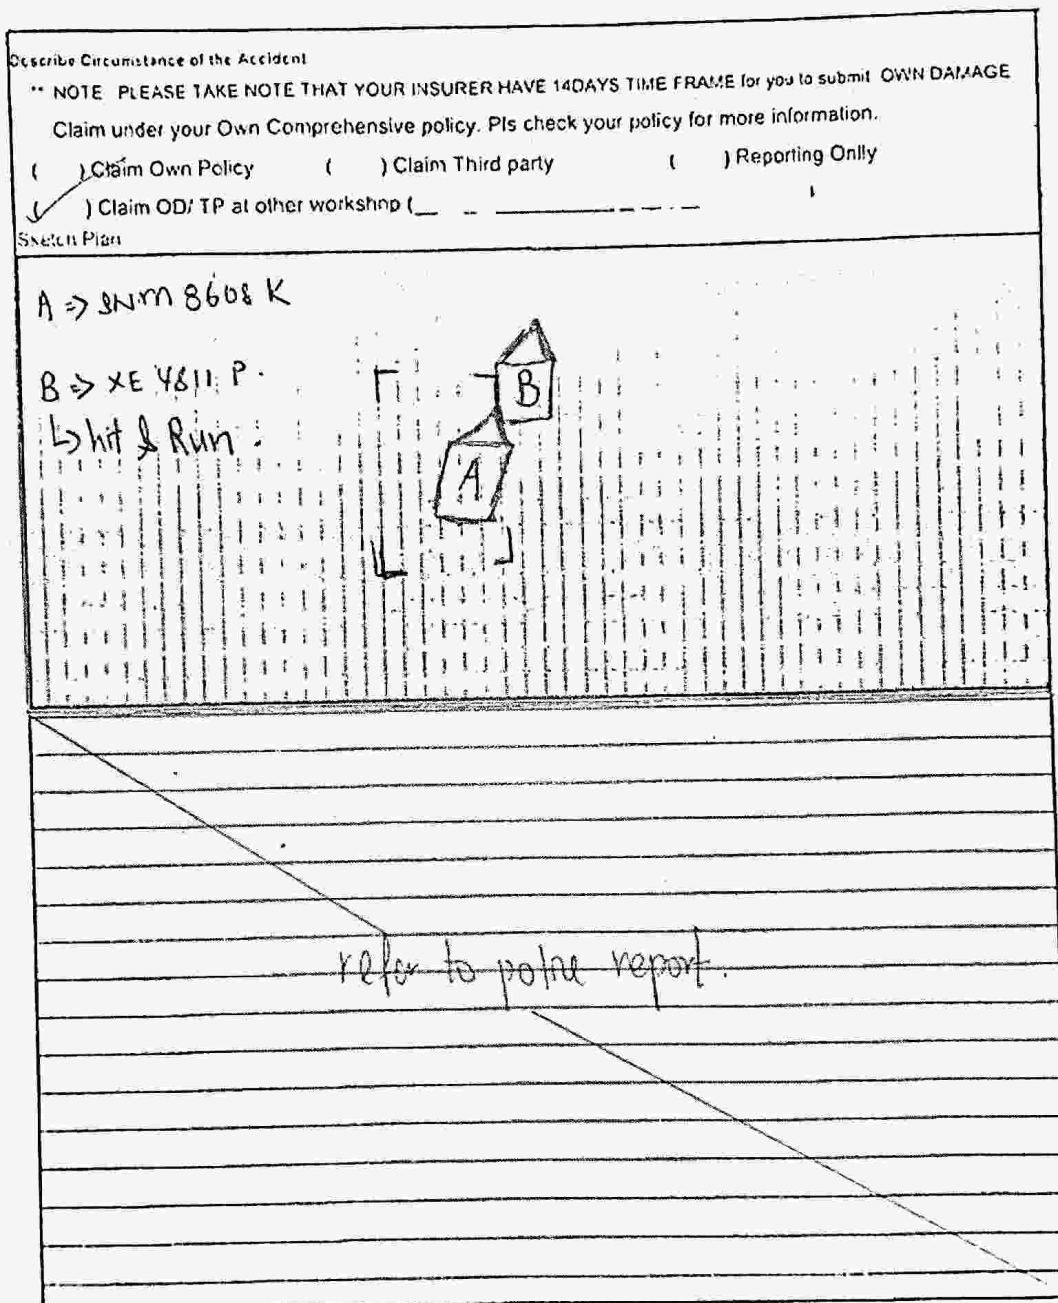 Describe Circumstance of the Accident
** NOTE PLEASE TAKE NOTE THAT YOUR INSURER HAVE 14DAYS TIME FRAME for you to submit OWN DAMAGE
Claim under your Own Comprehensive policy. Pls check your policy for more information.
( ) Claim Own Policy ( ) Claim Third party ( ) Reporting Onlly
(✓ ) Claim OD/ TP at other workshop (
Sketch Plan
A => SNM 8608 K
B => XE 4811 P.
↳ hit & Run.
B
A
refer to police report.